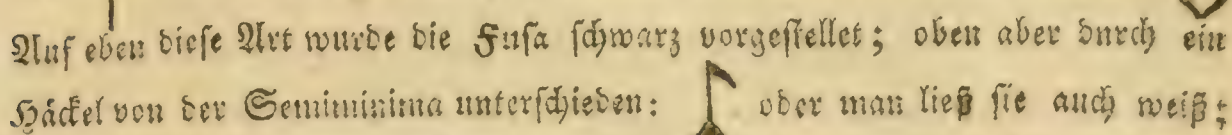 Auf eben dieſe Art wurde die Fuſa ſchwarz vorgeſtellet; oben aber durch ein
Häckel von der Semiminima unterſchieden: oder man ließ ſie auch weiß;